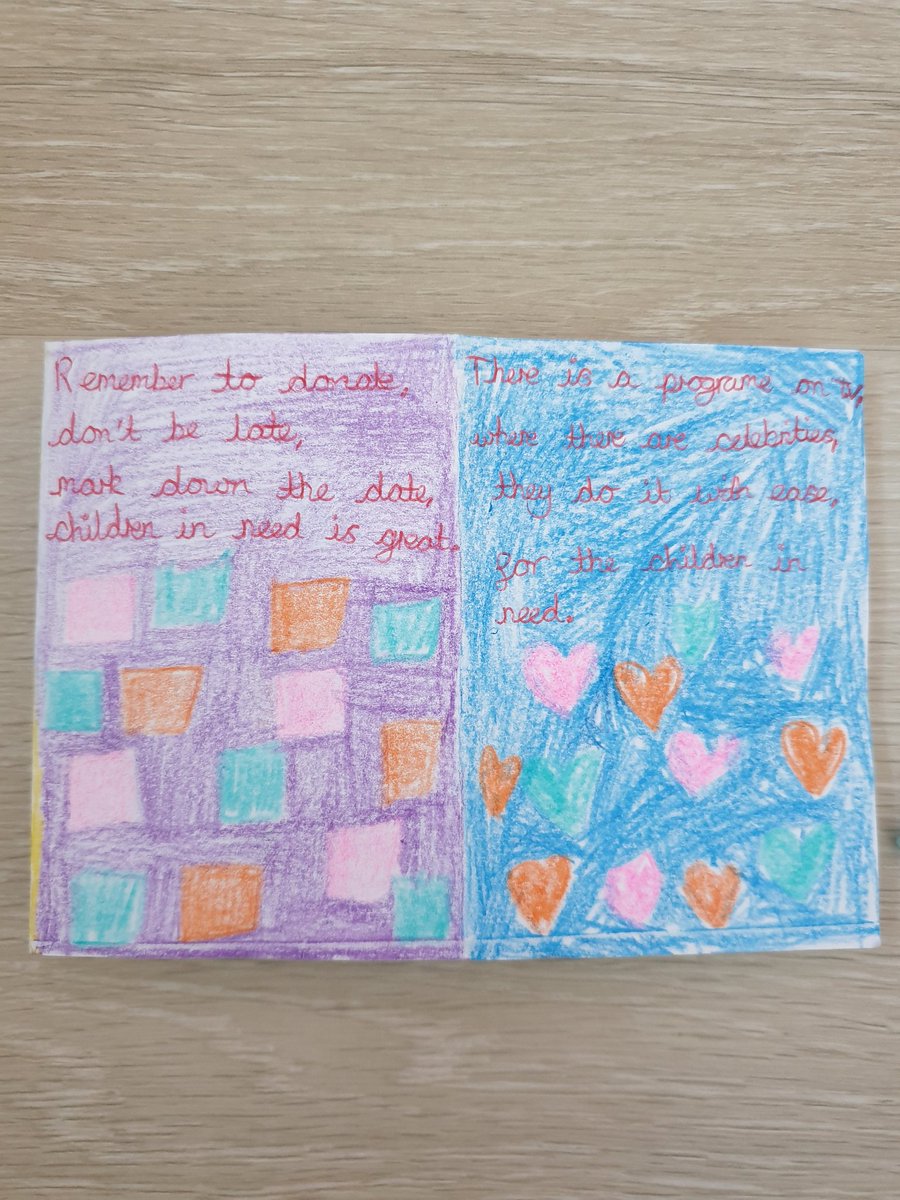 Remember to donate,
don't be late,
mark down the date,
children in need is great.
There is a programe on tv,
where there are celebrities,
they do it with ease,
for the children in
need.